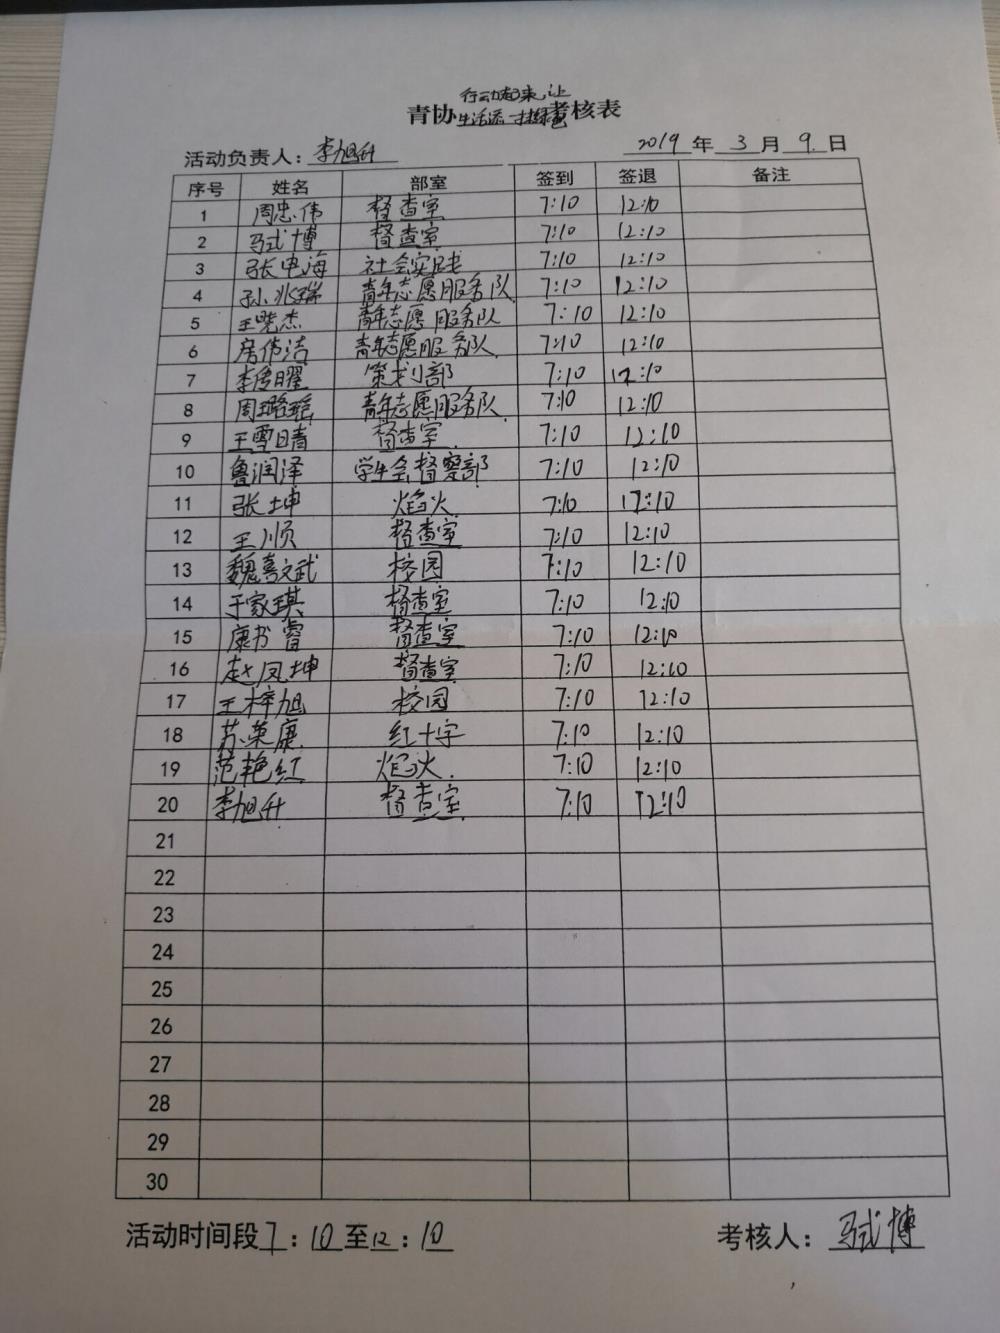 行动起来,让
青协生活添一抹绿色考核表
活动负责人：李旭升 2019年3月9日
序号 姓名 部室 签到 签退 备注
1 周忠伟 督查室 7:10 12:10
2 马忒博 督查室 7:10 12:10
3 张申海 社会实践 7:10 12:10
4 孙兆瑞 青年志愿服务队 7:10 12:10
5 王晓杰 青年志愿服务队 7:10 12:10
6 房伟洁 青年志愿服务队 7:10 12:10
7 策划部 7:10 12:10
8 周璐瑶 青年志愿服务队 7:10 12:10
9 王雪晴 督查室 7:10 12:10
10 鲁润泽 学生会督察部 7:10 12:10
11 张坤 焰火 7:10 12:10
12 王顺 督查室 7:10 12:10
13 魏嘉文武 校园 7:10 12:10
14 于家琪 督查室 7:10 12:10
15 康书睿 督查室 7:10 12:10
16 赵凤坤 督查室 7:10 12:10
17 王梓旭 校园 7:10 12:10
18 苏荣康 红十字 7:10 12:10
19 范艳红 焰火 7:10 12:10
20 李旭升 督查室 7:10 12:10
21
22
23
24
25
26
27
28
29
30
活动时间段7：10至12：10 考核人：马忒博